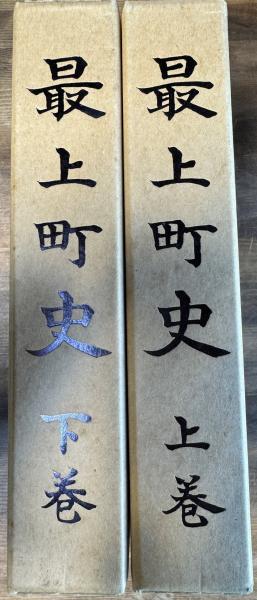 最上町史 上巻
最上町史 下巻